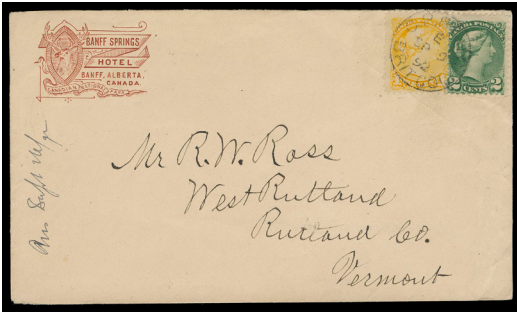 BANFF SPRINGS
HOTEL
BANFF, ALBERTA,
CANADA.
CANADIAN NATIONAL PARK
CANADA POSTAGE
2 CENTS 2
SP
92
Mr R. W. Ross
West Rutland
Rutland Co.
Vermont